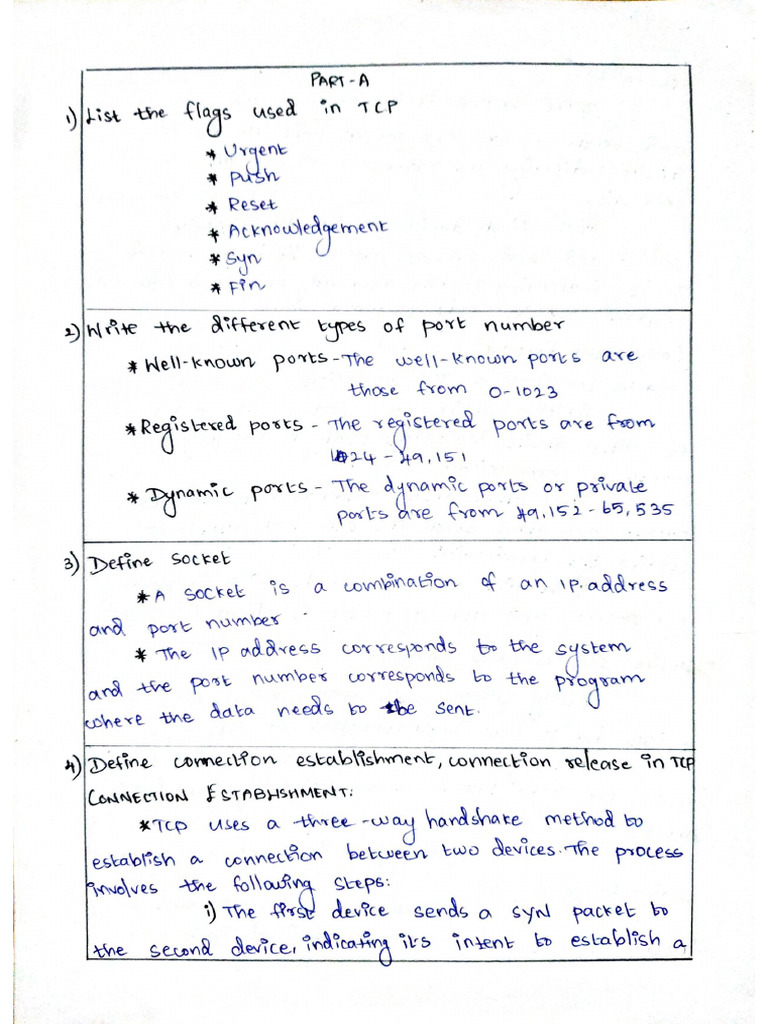 PART-A
1) List the flags used in TCP
* Urgent
* Push
* Reset
* Acknowledgement
* Syn
* Fin
2) Write the different types of port number
* Well-known ports - The well-known ports are
those from 0-1023
* Registered ports - The registered ports are from
1024 - 49,151
* Dynamic ports - The dynamic ports or private
ports are from 49,152-65,535
3) Define socket
* A socket is a combination of an IP. address
and port number
* The IP address corresponds to the system
and the port number corresponds to the program
where the data needs to be sent.
4) Define connection establishment, connection release in TCP
CONNECTION ESTABLISHMENT:
* TCP uses a three-way handshake method to
establish a connection between two devices. The process
involves the following steps:
i) The first device sends a SYN packet to
the second device, indicating its intent to establish a